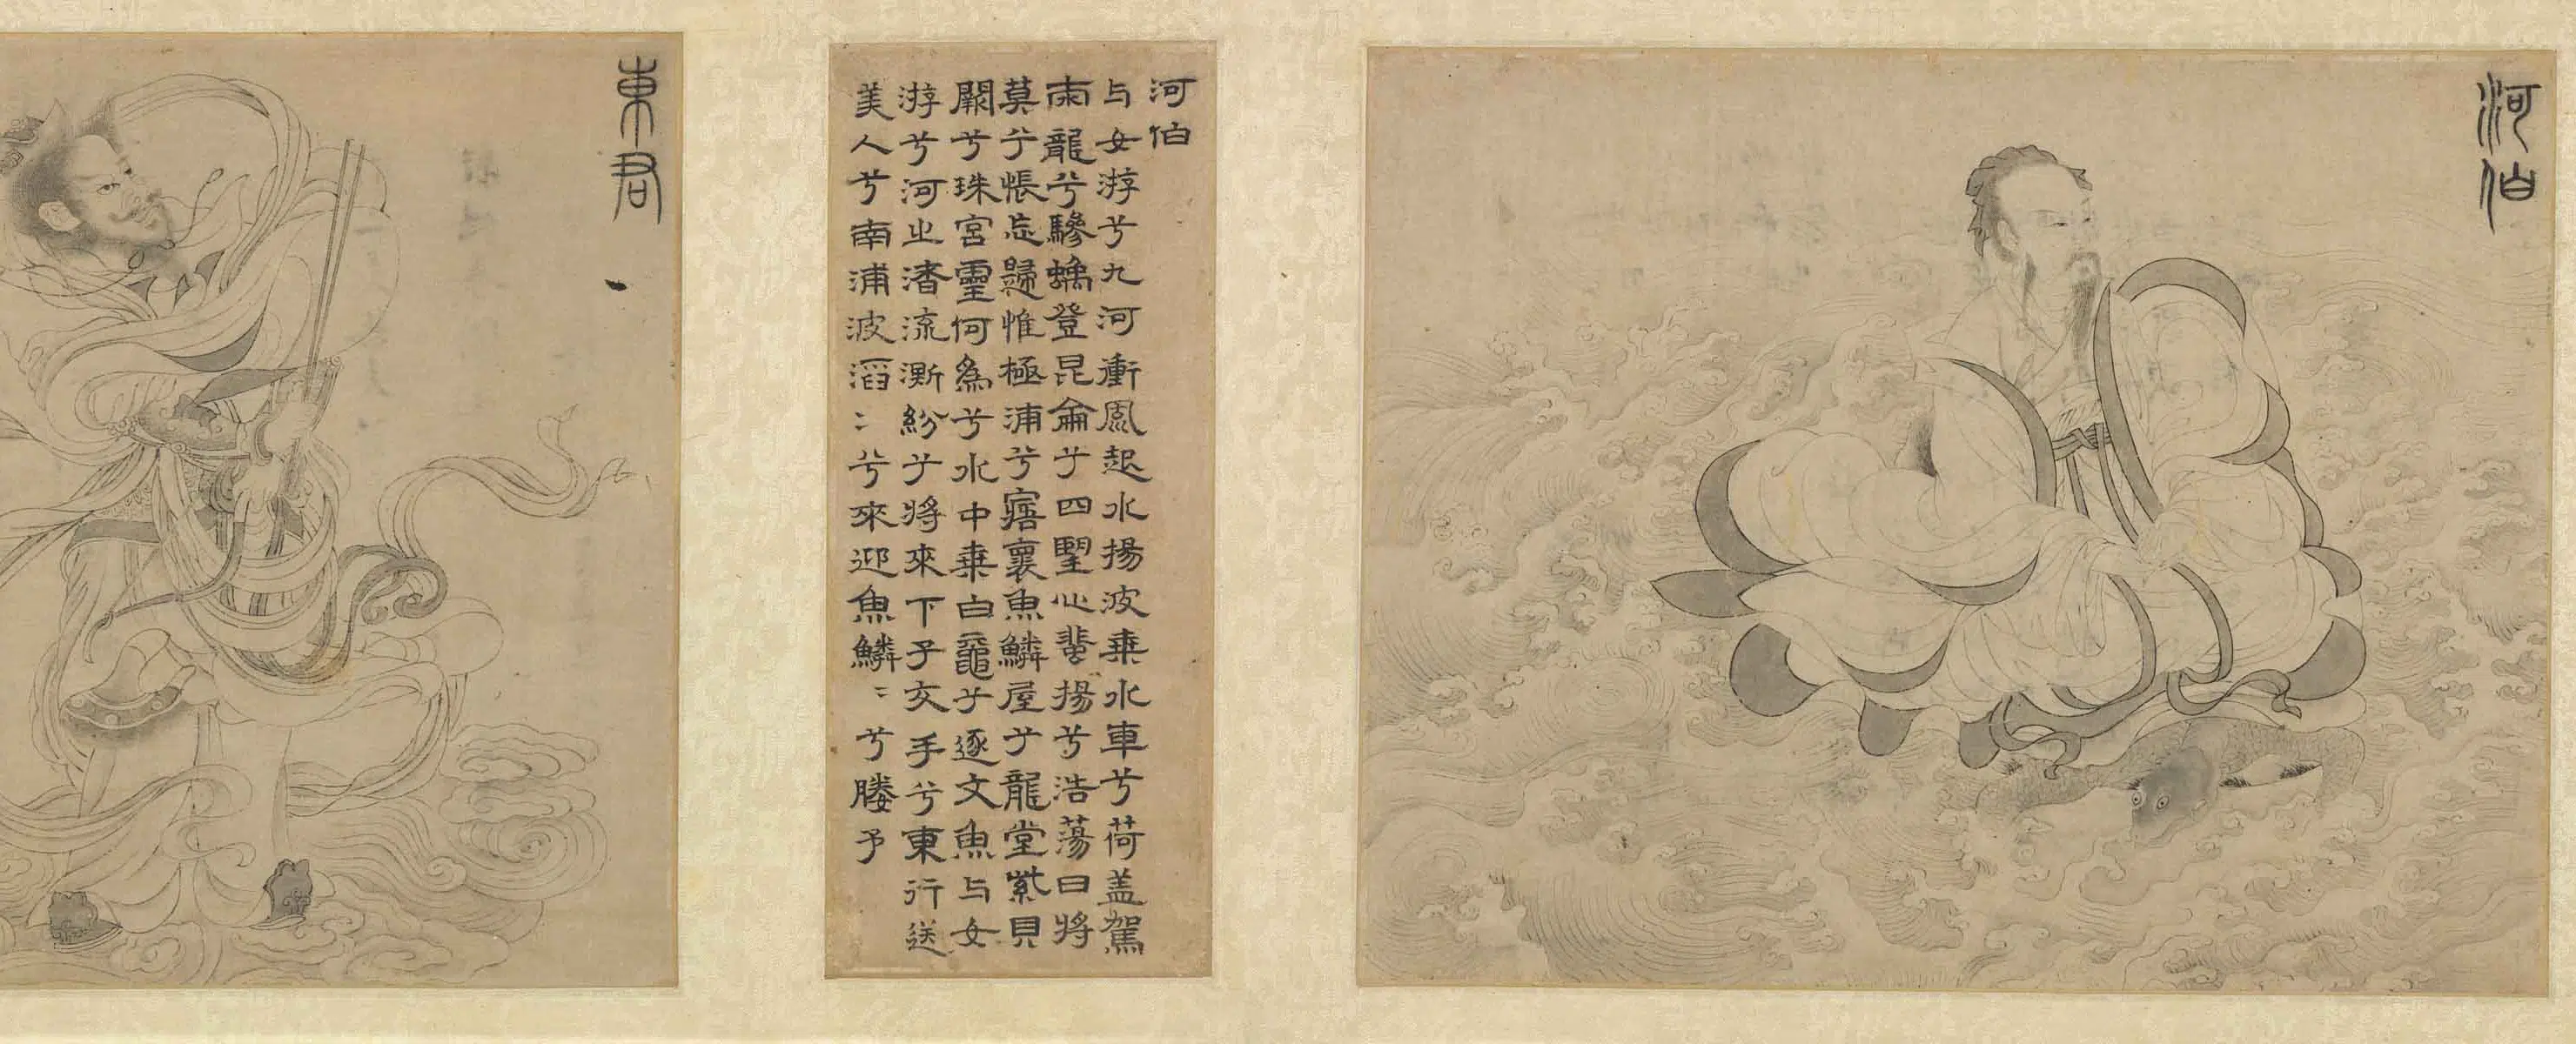 河伯
河伯
与女游兮九河衝風起水揚波乗水車兮荷盖駕
兩龍兮驂螭登昆侖兮四望心蜚揚兮浩蕩日將
莫兮悵忘歸惟極浦兮寤襄魚鱗屋兮龍堂紫貝
闕兮珠宮靈何爲兮水中乗白黿兮逐文魚与女
游兮河之渚流澌紛兮將來下子交手兮東行送
美人兮南浦波滔〻兮來迎魚鱗〻兮媵予
東君